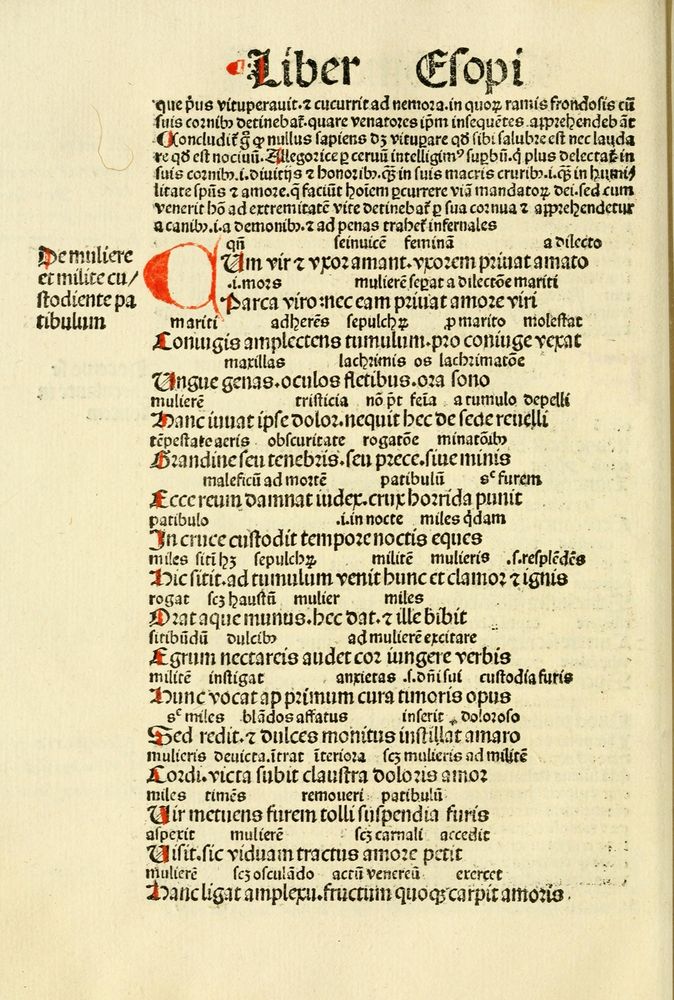 Liber Esopi
que p̄us vituperauit. ⁊ cucurrit ad nemora. in quoꝝ ramis frondosis cū
suis cornibꝫ detinebat̃. quare venatores ip̄m insequētes apprehendebāt
Concludit̃ g̊ ꝙ nullus sapiens dꝫ vitupare qđ sibi salubre est nec lauda
re qđ est nociuū. Allegorice ꝑ ceruū intelligimꝰ supbū. q̇ plus delectat̃ in
suis cornibꝫ .i. diuitijs ⁊ honoribꝫ. qꝫ in suis macris cruribꝫ .i. qꝫ in humi
litate spūs ⁊ amore. q̇ faciūt hoīem ꝑcurrere viā mandatoꝝ dei. sed cum
venerit hō ad extremitatē vite detinebat̃ ꝑ sua cornua ⁊ apprehendetur
a canibꝫ .i. a demonibꝫ ⁊ ad penas trahet̃ infernales
De muliere
et milite cu/
stodiente pa
tibulum
qn̄ seinuicē feminā a dilecto
CUm vir ⁊ vxor amant. vxorem priuat amato
.i. mors mulierē sepat a dilectōne mariti
Parca viro: nec eam priuat amore viri
mariti adherēs sepulchꝝ ꝓ marito molestat
Coniugis amplectens tumulum. pro coniuge vexat
maxillas lachrimis os lachrimatōe
Ungue genas. oculos fletibus. ora sono
mulierē tristicia nō pt̄ feīa a tumulo depelli
Hanc iuuat ipse dolor. nequit hec de sede reuelli
tēpestate aeris obscuritate rogatōe minatōibꝫ
Grandine seu tenebris. seu prece. siue minis
maleficū ad mortē patibulū sꝫ furem
Ecce reum damnat iudex. crux horrida punit
patibulo .i. in nocte miles q̇dam
In cruce custodit tempore noctis eques
miles sitīt hꝫ sepulchꝝ militē mulieris .s. resplēdēs
Hic sitit. ad tumulum venit hunc et clamor ⁊ ignis
rogat scꝫ haustū mulier miles
Orat aque munus. hec dat. ⁊ ille bibit
sitibūdū dulcibꝫ ad mulierē excitare
Egrum nectareis audet cor iungere verbis
militē instigat anxietas .s. dn̄i sui custodia furis
Hunc vocat ap primum cura timoris opus
sꝫ miles blādos affatus inserit doloroso
Sed redit. ⁊ dulces monitus instillat amaro
mulieris deuicta. ītrat īteriora scꝫ mulieris ad militē
Cordi. victa subit claustra doloris amor
miles timēs remoueri patibulū
Uir metuens furem tolli suspendia furis
aspexit mulierē scꝫ carnali accedit
Uisit. sic viduam tractus amore petit
mulierē scꝫ osculādo actū venereū exercet
Hanc ligat amplexu. fructum quoqꝫ carpit amoris.